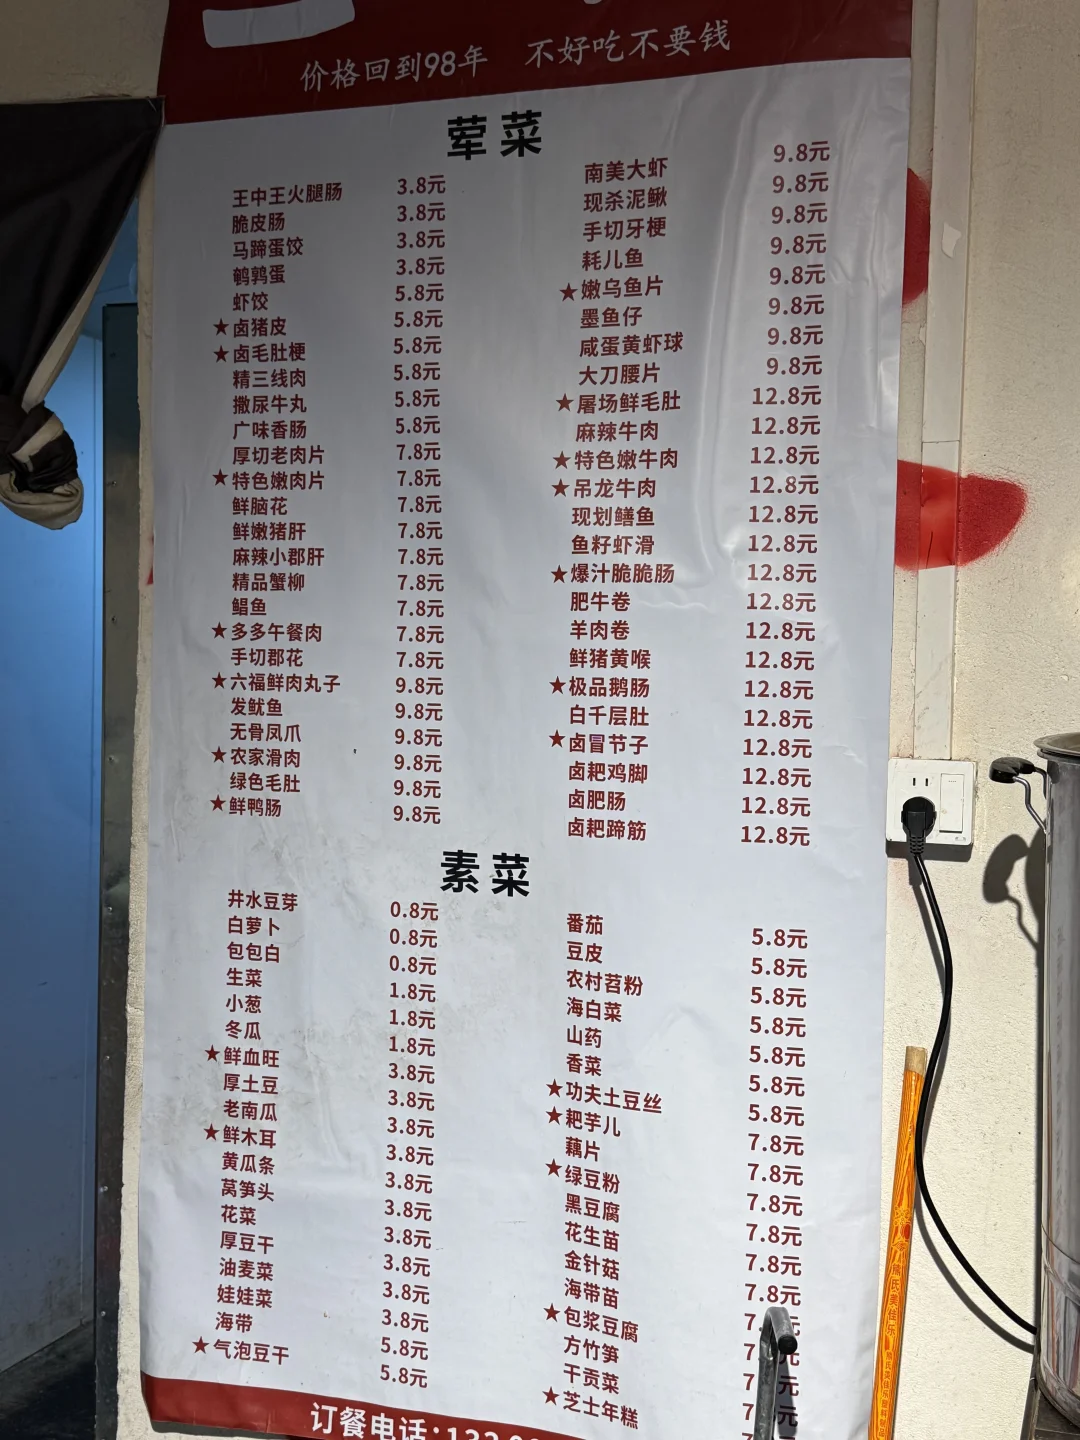 价格回到98年 不好吃不要钱
荤菜
王中王火腿肠 3.8元
脆皮肠 3.8元
马蹄蛋饺 3.8元
鹌鹑蛋 3.8元
虾饺 5.8元
★卤猪皮 5.8元
★卤毛肚梗 5.8元
精三线肉 5.8元
撒尿牛丸 5.8元
广味香肠 5.8元
厚切老肉片 7.8元
★特色嫩肉片 7.8元
鲜脑花 7.8元
鲜嫩猪肝 7.8元
麻辣小郡肝 7.8元
精品蟹柳 7.8元
鲳鱼 7.8元
★多多午餐肉 7.8元
手切郡花 7.8元
★六福鲜肉丸子 9.8元
发鱿鱼 9.8元
无骨凤爪 9.8元
★农家滑肉 9.8元
绿色毛肚 9.8元
★鲜鸭肠 9.8元
南美大虾 9.8元
现杀泥鳅 9.8元
手切牙梗 9.8元
耗儿鱼 9.8元
★嫩乌鱼片 9.8元
墨鱼仔 9.8元
咸蛋黄虾球 9.8元
大刀腰片 9.8元
★屠场鲜毛肚 12.8元
麻辣牛肉 12.8元
★特色嫩牛肉 12.8元
★吊龙牛肉 12.8元
现划鳝鱼 12.8元
鱼籽虾滑 12.8元
★爆汁脆脆肠 12.8元
肥牛卷 12.8元
羊肉卷 12.8元
鲜猪黄喉 12.8元
★极品鹅肠 12.8元
白千层肚 12.8元
★卤冒节子 12.8元
卤耙鸡脚 12.8元
卤肥肠 12.8元
卤耙蹄筋 12.8元
素菜
井水豆芽 0.8元
白萝卜 0.8元
包包白 0.8元
生菜 1.8元
小葱 1.8元
冬瓜 1.8元
★鲜血旺 3.8元
厚土豆 3.8元
老南瓜 3.8元
★鲜木耳 3.8元
黄瓜条 3.8元
莴笋头 3.8元
花菜 3.8元
厚豆干 3.8元
油麦菜 3.8元
娃娃菜 3.8元
海带 5.8元
★气泡豆干 5.8元
番茄 5.8元
豆皮 5.8元
农村苕粉 5.8元
海白菜 5.8元
山药 5.8元
香菜 5.8元
★功夫土豆丝 5.8元
★耙芋儿 7.8元
藕片 7.8元
★绿豆粉 7.8元
黑豆腐 7.8元
花生苗 7.8元
金针菇 7.8元
海带苗
★包浆豆腐
方竹笋
干贡菜
★芝士年糕
订餐电话: